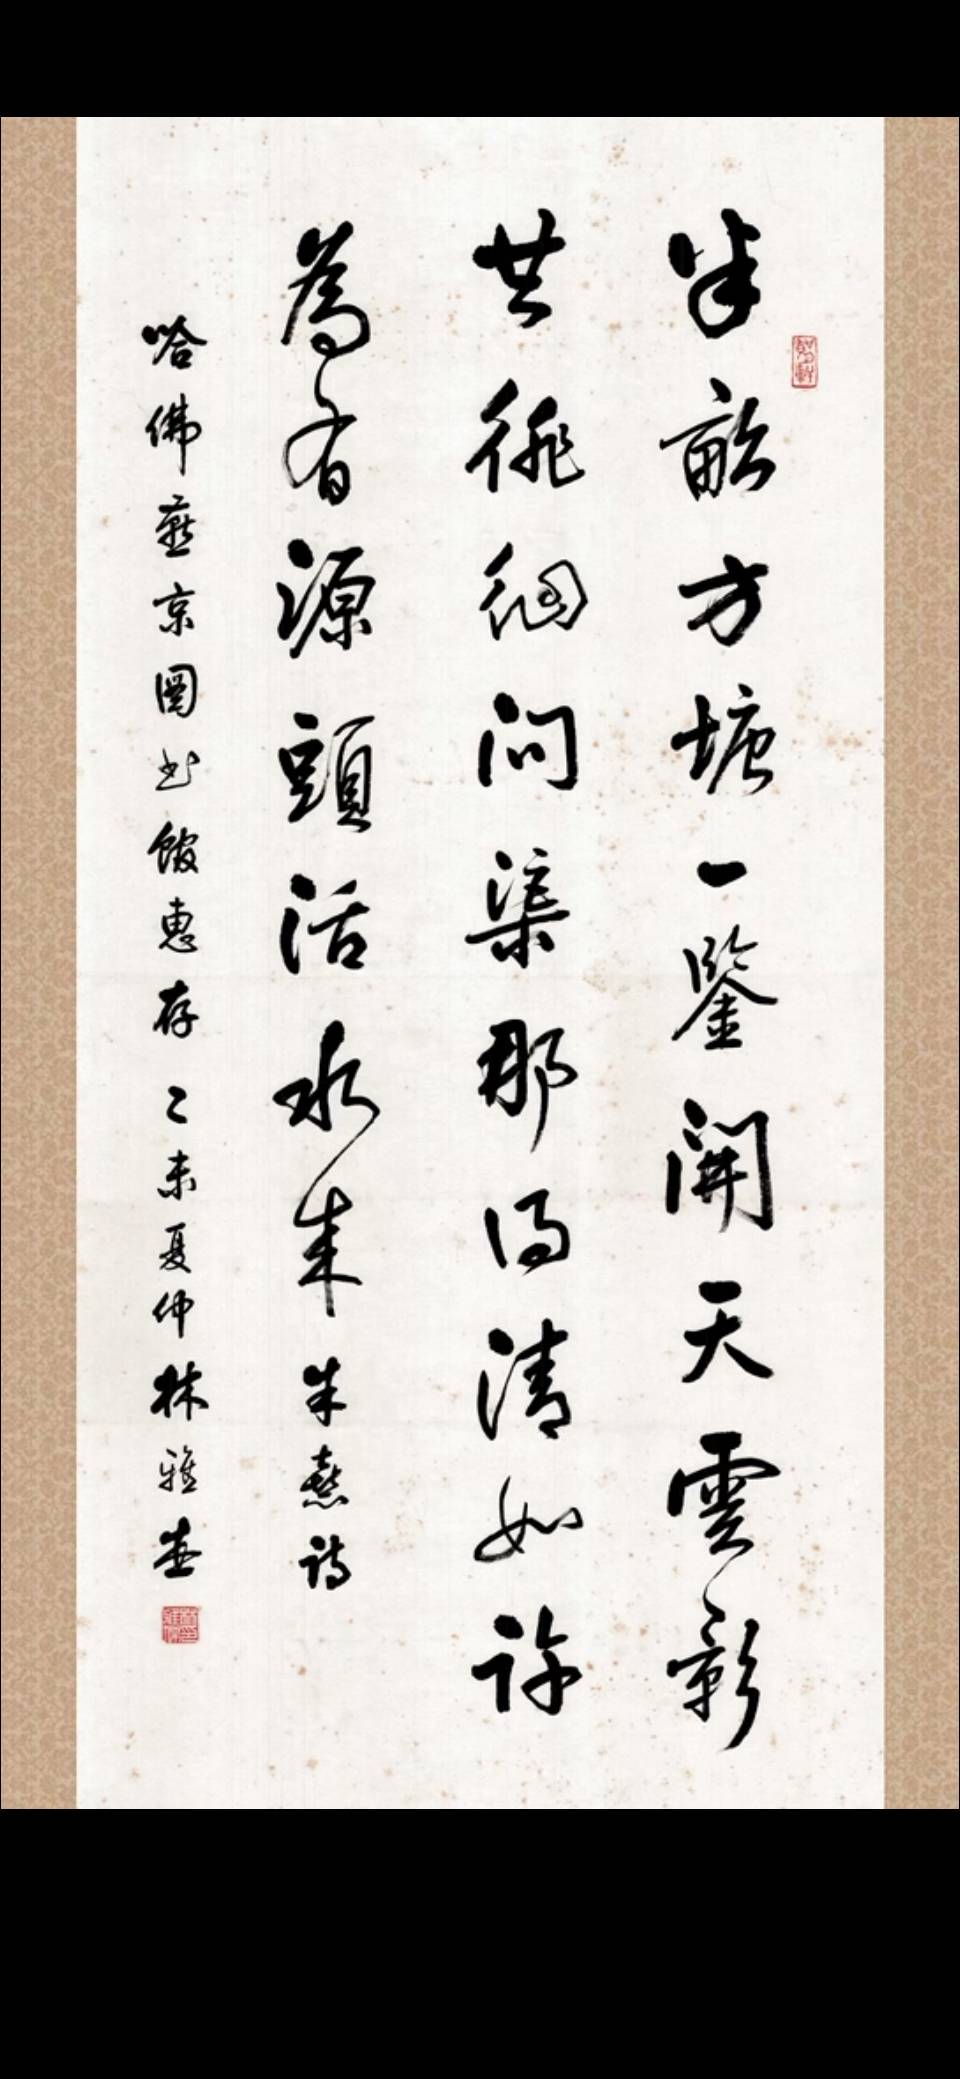 半畝方塘一鑒開天雲影
共徘徊問渠那得清如許
為有源頭活水來 朱熹詩
哈佛燕京圖書館惠存 乙未夏仲 林雅